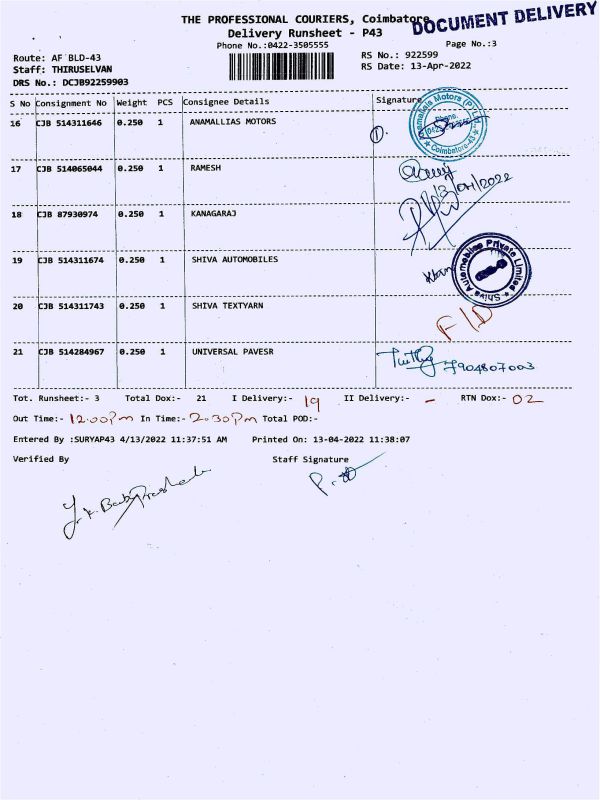 THE PROFESSIONAL COURIERS, Coimbatore
DOCUMENT DELIVERY
Delivery Runsheet - P43
Phone No.:0422-3505555
Page No.:3
Route: AF BLD-43
RS No.: 922599
Staff: THIRUSELVAN
RS Date: 13-Apr-2022
DRS No.: DCJB92259903
S No Consignment No Weight PCS Consignee Details Signature
16 CJB 514311646 0.250 1 ANAMALLIAS MOTORS
Coimbatore-43
17 CJB 514065044 0.250 1 RAMESH
13/04/2022
18 CJB 87930974 0.250 1 KANAGARAJ
19 CJB 514311674 0.250 1 SHIVA AUTOMOBILES
Shiva Automobiles Private Limited
20 CJB 514311743 0.250 1 SHIVA TEXTYARN
F/D
21 CJB 514284967 0.250 1 UNIVERSAL PAVESR
7904807003
Tot. Runsheet:- 3 Total Dox:- 21 I Delivery:- 19 II Delivery:- - RTN Dox:- 02
Out Time:- 12.00Pm In Time:- 2.30Pm Total POD:-
Entered By :SURYAP43 4/13/2022 11:37:51 AM Printed On: 13-04-2022 11:38:07
Verified By Staff Signature